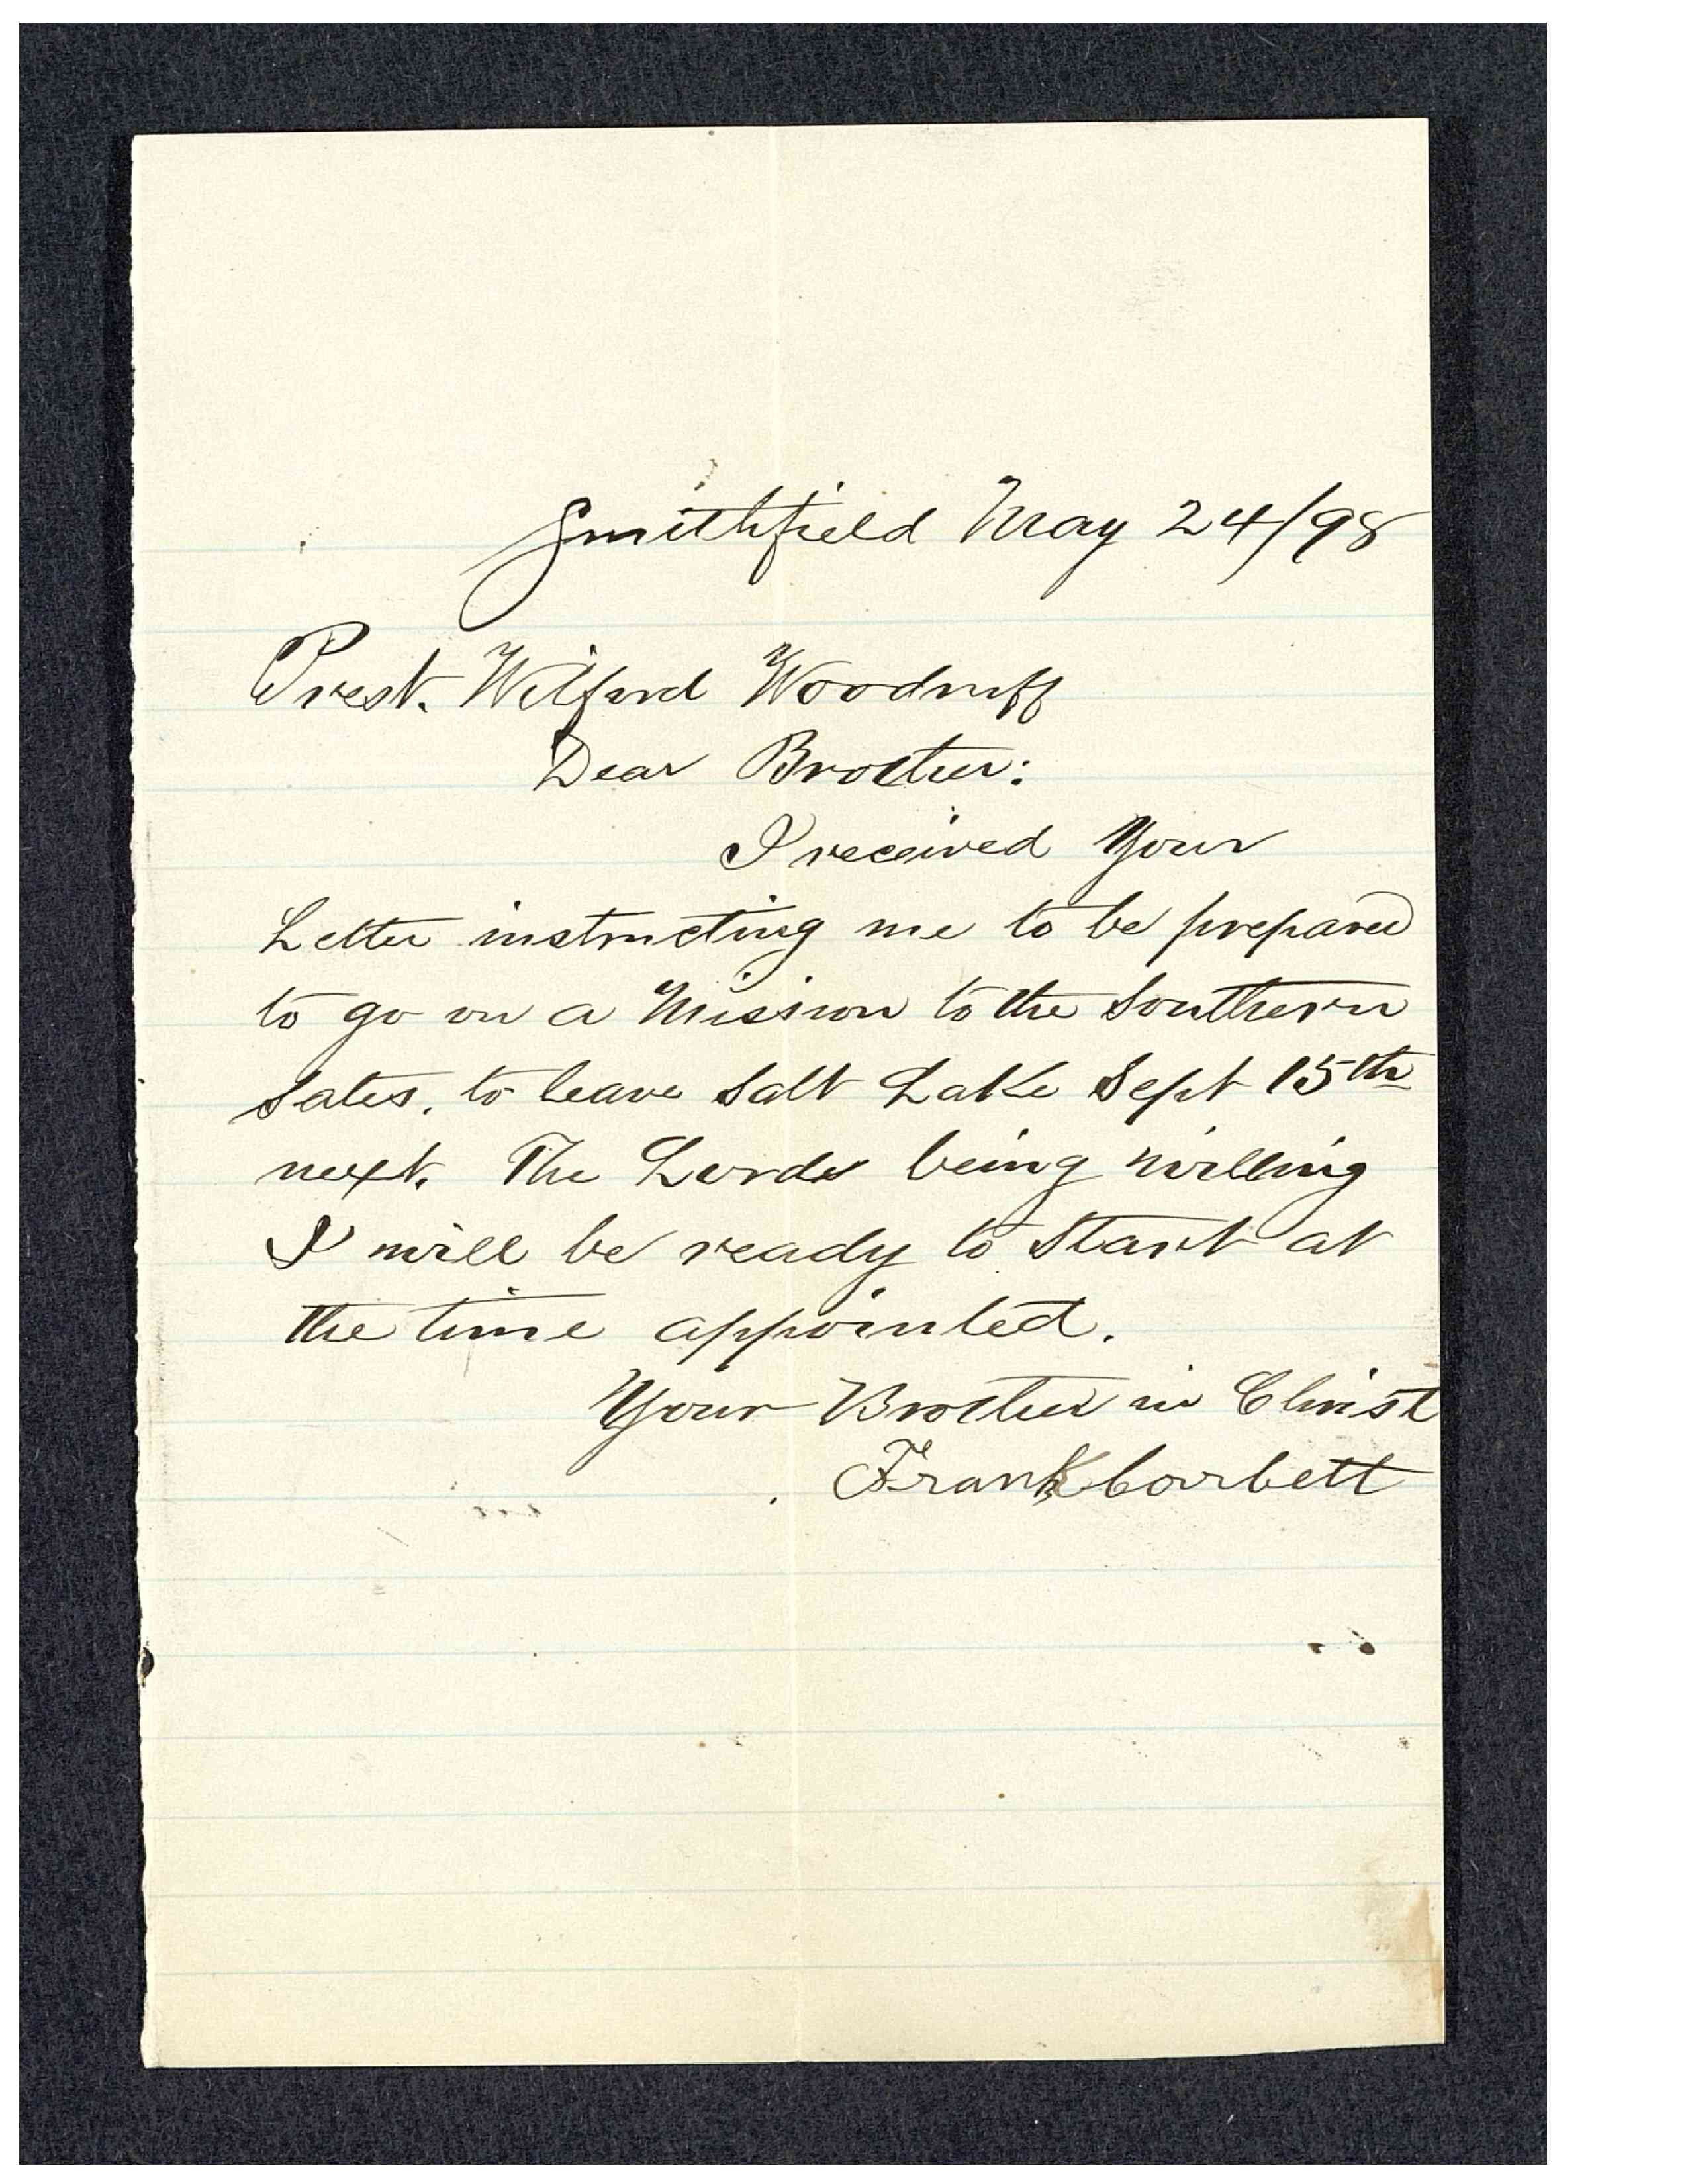 Smithfield May 24/98
Prest. Wilford Woodruff
Dear Brother:
I received Your
Letter instructing me to be prepared
to go on a Mission to the Southern
Sates. to leave Salt Lake Sept 15th
next. The Lords being willing
I will be ready to Start at
the time appointed.
Your Brother in Christ
Frank Corbett